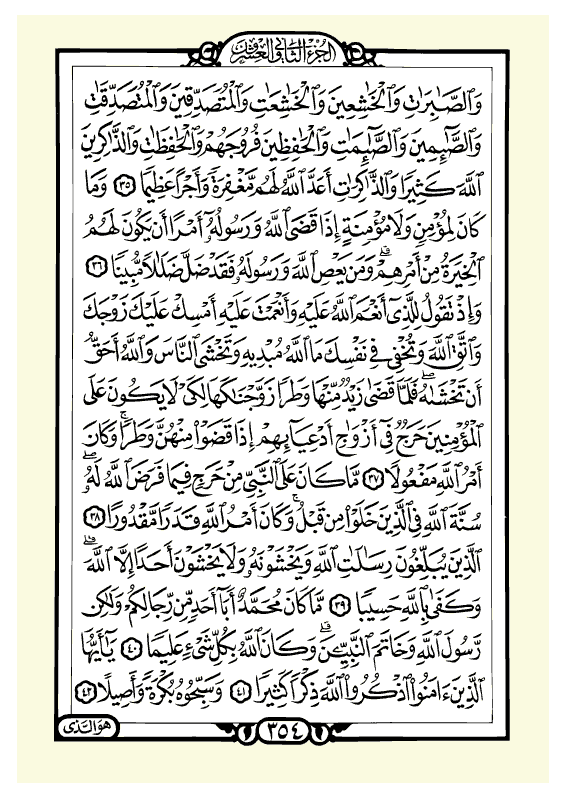 الجزء الثاني والعشرون
وَٱلصَّٰبِرَٰتِ وَٱلْخَٰشِعِينَ وَٱلْخَٰشِعَٰتِ وَٱلْمُتَصَدِّقِينَ وَٱلْمُتَصَدِّقَٰتِ
وَٱلصَّٰٓئِمِينَ وَٱلصَّٰٓئِمَٰتِ وَٱلْحَٰفِظِينَ فُرُوجَهُمْ وَٱلْحَٰفِظَٰتِ وَٱلذَّٰكِرِينَ
ٱللَّهَ كَثِيرًا وَٱلذَّٰكِرَٰتِ أَعَدَّ ٱللَّهُ لَهُم مَّغْفِرَةً وَأَجْرًا عَظِيمًا ٣٥ وَمَا
كَانَ لِمُؤْمِنٍ وَلَا مُؤْمِنَةٍ إِذَا قَضَى ٱللَّهُ وَرَسُولُهُۥٓ أَمْرًا أَن يَكُونَ لَهُمُ
ٱلْخِيَرَةُ مِنْ أَمْرِهِمْ ۗ وَمَن يَعْصِ ٱللَّهَ وَرَسُولَهُۥ فَقَدْ ضَلَّ ضَلَٰلًا مُّبِينًا ٣٦
وَإِذْ تَقُولُ لِلَّذِىٓ أَنْعَمَ ٱللَّهُ عَلَيْهِ وَأَنْعَمْتَ عَلَيْهِ أَمْسِكْ عَلَيْكَ زَوْجَكَ
وَٱتَّقِ ٱللَّهَ وَتُخْفِى فِى نَفْسِكَ مَا ٱللَّهُ مُبْدِيهِ وَتَخْشَى ٱلنَّاسَ وَٱللَّهُ أَحَقُّ
أَن تَخْشَىٰهُ ۖ فَلَمَّا قَضَىٰ زَيْدٌ مِّنْهَا وَطَرًا زَوَّجْنَٰكَهَا لِكَىْ لَا يَكُونَ عَلَى
ٱلْمُؤْمِنِينَ حَرَجٌ فِىٓ أَزْوَٰجِ أَدْعِيَآئِهِمْ إِذَا قَضَوْا۟ مِنْهُنَّ وَطَرًا ۚ وَكَانَ
أَمْرُ ٱللَّهِ مَفْعُولًا ٣٧ مَّا كَانَ عَلَى ٱلنَّبِىِّ مِنْ حَرَجٍ فِيمَا فَرَضَ ٱللَّهُ لَهُۥ ۖ
سُنَّةَ ٱللَّهِ فِى ٱلَّذِينَ خَلَوْا۟ مِن قَبْلُ ۚ وَكَانَ أَمْرُ ٱللَّهِ قَدَرًا مَّقْدُورًا ٣٨
ٱلَّذِينَ يُبَلِّغُونَ رِسَٰلَٰتِ ٱللَّهِ وَيَخْشَوْنَهُۥ وَلَا يَخْشَوْنَ أَحَدًا إِلَّا ٱللَّهَ ۗ
وَكَفَىٰ بِٱللَّهِ حَسِيبًا ٣٩ مَّا كَانَ مُحَمَّدٌ أَبَآ أَحَدٍ مِّن رِّجَالِكُمْ وَلَٰكِن
رَّسُولَ ٱللَّهِ وَخَاتَمَ ٱلنَّبِيِّـۧنَ ۗ وَكَانَ ٱللَّهُ بِكُلِّ شَىْءٍ عَلِيمًا ٤٠ يَٰٓأَيُّهَا
ٱلَّذِينَ ءَامَنُوا۟ ٱذْكُرُوا۟ ٱللَّهَ ذِكْرًا كَثِيرًا ٤١ وَسَبِّحُوهُ بُكْرَةً وَأَصِيلًا ٤٢
هُوَ ٱلَّذِى
٣٥٤